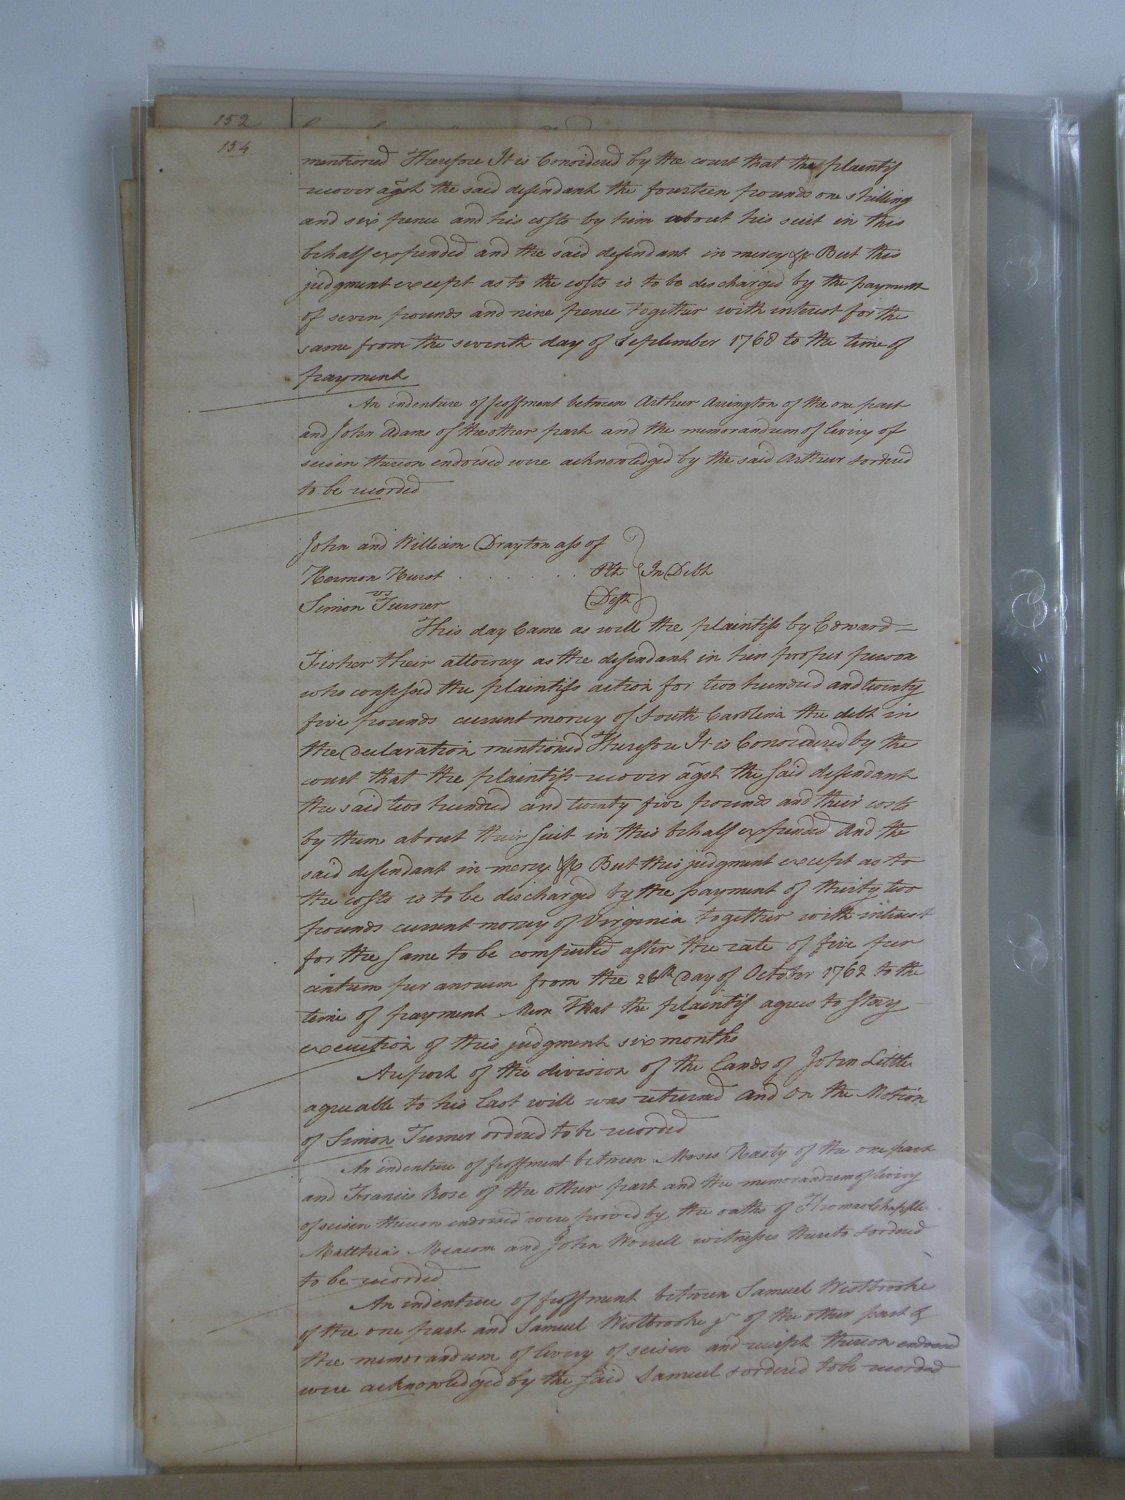 152
154
mentioned Therefore It is Considered by the court that the plaintif
recover agst the said defendant the fourteen pounds one shilling
and six pence and his costs by him about his suit in this
behalf expended and the said defendant in mercy &c But this
judgment except as to the costs is to be discharged by the payment
of seven pounds and nine pence together with interest for the
same from the seventh day of September 1768 to the time of
payment
An indenture of feoffment between Arthur Arrington of the one part
and John Adams of the other part and the memorandum of livery of
seisen thereon endorsed were acknowledged by the said Arthur & ordered
to be recorded
John and William Drayton ass of
Hermon Hurst . . . . . . . Plt } In Debt
vs
Simon Turner Deft
This day Came as well the plaintifs by Edward
Fisher their attorney as the defendant in his proper person
who confessed the plaintifs action for two hundred and twenty
five pounds current money of South Carolina the debt in
the Declaration mentioned Therefore It is Considered by the
court that the plaintifs recover agst the said defendant
the said two hundred and twenty five pounds and their costs
by them about their suit in this behalf expended And the
said defendant in mercy &c But this judgment except as to
the costs is to be discharged by the payment of thirty two
pounds current money of Virginia together with interest
for the same to be computed after the rate of five per
centum per annum from the 26th Day of October 1762 to the
time of payment Mem That the plaintif agrees to stay
execution of this judgment six months
A report of the division of the Lands of John Little
agreeable to his Last will was returned and On the Motion
of Simon Turner ordered to be recorded
An indenture of feoffment between Moses Hasty of the one part
and Francis Rose of the other part and the memorandum of livery
of seisen thereon endorsed were proved by the oaths of Thomas Chappell
Matthias Meacom and John Worrell witnesses thereto & ordered
to be recorded
An indenture of feoffment between Samuel Westbrooke
of the one part and Samuel Westbrooke jr of the other part &
the memorandum of livery of seisen and receipt thereon endorsed
were acknowledged by the said Samuel & ordered to be recorded